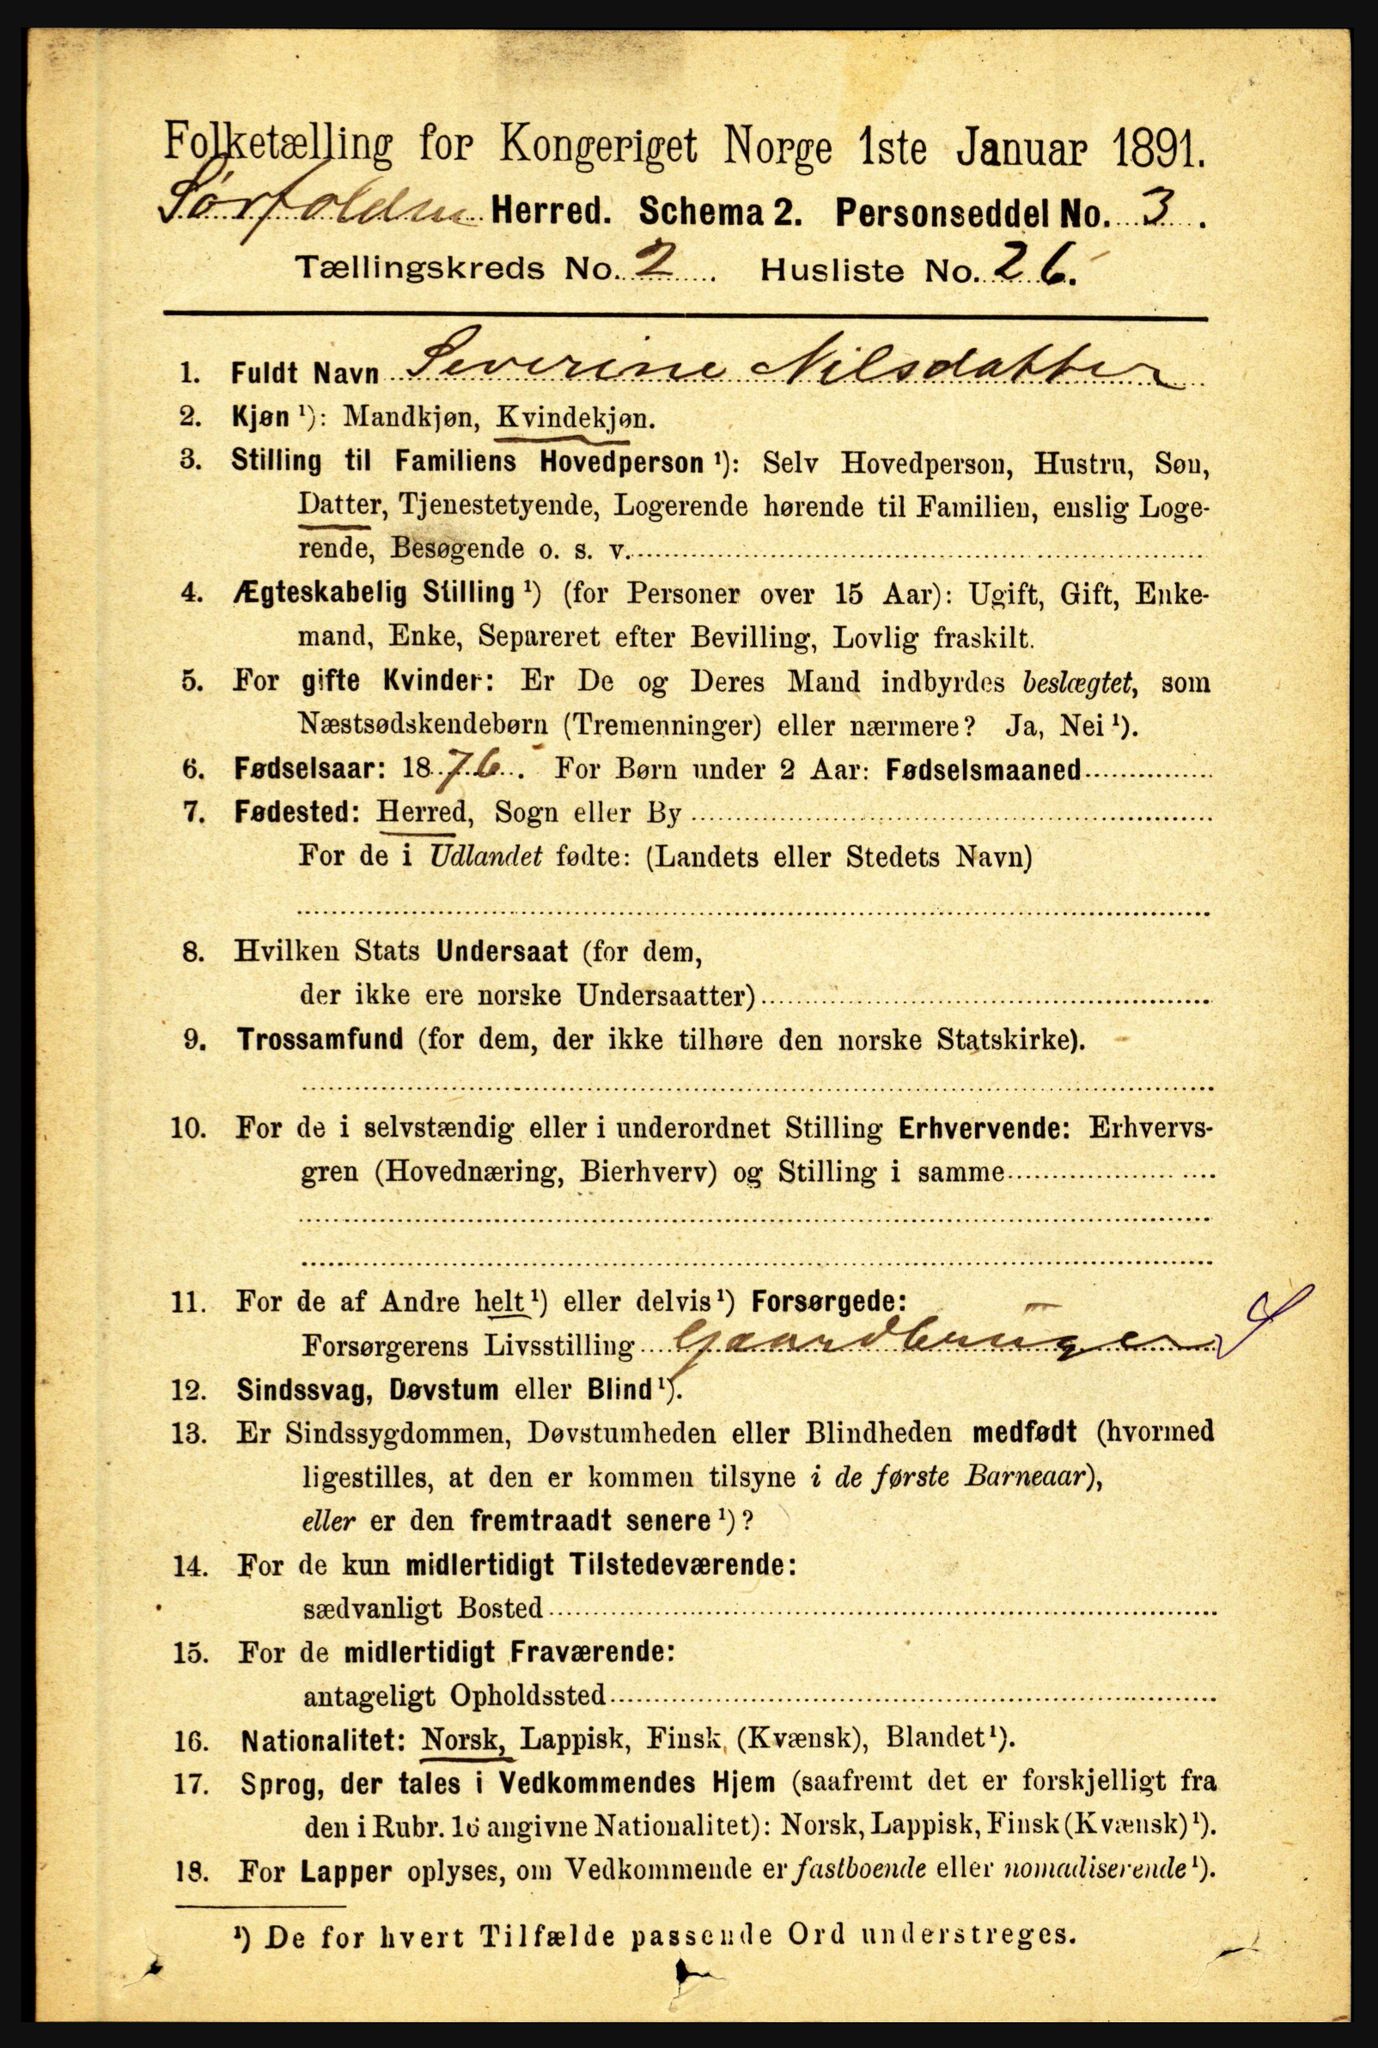 Folketælling for Kongeriget Norge 1ste Januar 1891.
Sørfolden Herred. Schema 2. Personseddel No. 3.
Tællingskreds No. 2. Husliste No. 26.
1. Fuldt Navn Severine Nilsdatter
2. Kjøn ¹): Mandkjøn, Kvindekjøn.
3. Stilling til Familiens Hovedperson ¹): Selv Hovedperson, Hustru, Søn,
Datter, Tjenestetyende, Logerende hørende til Familien, enslig Loge-
rende, Besøgende o. s. v.
4. Ægteskabelig Stilling ¹) (for Personer over 15 Aar): Ugift, Gift, Enke-
mand, Enke, Separeret efter Bevilling, Lovlig fraskilt.
5. For gifte Kvinder: Er De og Deres Mand indbyrdes beslægtet, som
Næstsødskendebørn (Tremenninger) eller nærmere? Ja, Nei ¹).
6. Fødselsaar: 1876. For Børn under 2 Aar: Fødselsmaaned
7. Fødested: Herred, Sogn eller By
For de i Udlandet fødte: (Landets eller Stedets Navn)
8. Hvilken Stats Undersaat (for dem,
der ikke ere norske Undersaatter)
9. Trossamfund (for dem, der ikke tilhøre den norske Statskirke).
10. For de i selvstændig eller i underordnet Stilling Erhvervende: Erhvervs-
gren (Hovednæring, Bierhverv) og Stilling i samme
11. For de af Andre helt ¹) eller delvis ¹) Forsørgede:
Forsørgerens Livsstilling Gaardbruger
12. Sindssvag, Døvstum eller Blind ¹).
13. Er Sindssygdommen, Døvstumheden eller Blindheden medfødt (hvormed
ligestilles, at den er kommen tilsyne i de første Barneaar),
eller er den fremtraadt senere ¹)?
14. For de kun midlertidigt Tilstedeværende:
sædvanligt Bosted
15. For de midlertidigt Fraværende:
antageligt Opholdssted
16. Nationalitet: Norsk, Lappisk, Finsk (Kvænsk), Blandet ¹).
17. Sprog, der tales i Vedkommendes Hjem (saafremt det er forskjelligt fra
den i Rubr. 16 angivne Nationalitet): Norsk, Lappisk, Finsk (Kvænsk) ¹).
18. For Lapper oplyses, om Vedkommende er fastboende eller nomadiserende ¹).
¹) De for hvert Tilfælde passende Ord understreges.